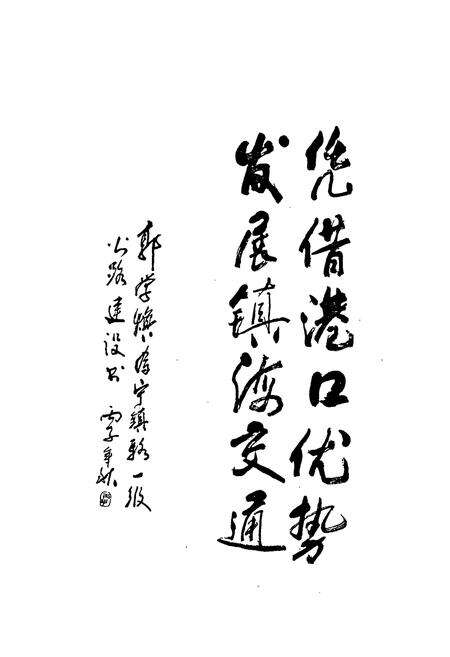 凭借港口优势
发展镇海交通
郭学焕为宁镇骆一级
公路建设书 丙子年秋